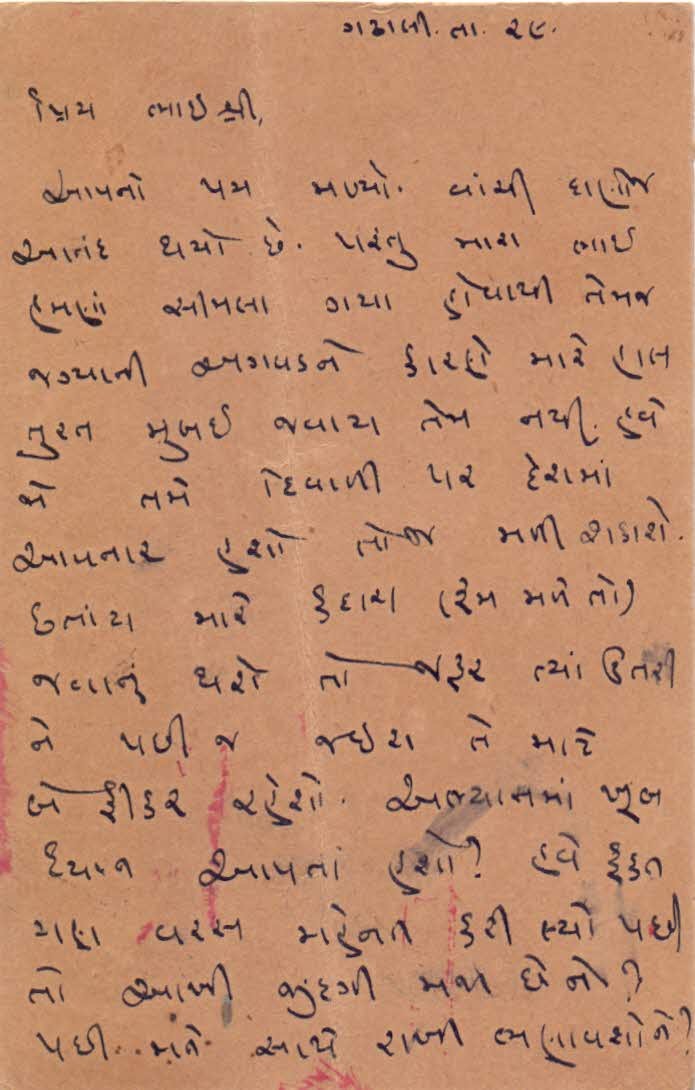 ગઢાલી. તા. ૨૯.
પ્રિય ભાઈશ્રી,
આપનો પત્ર મળ્યો. વાંચી ઘણોજ
આનંદ થયો છે. પરંતુ મારા ભાઈ
હમણાં સીમલા ગયા હોવાથી તેમજ
જગ્યાની અગવડને કારણે મારે હાલ
તુરત મુંબઈ જવાય તેમ નથી. હવે
જો તમે દિવાળી પર દેશમાં
આવનાર હશો તોજ મળી શકાશે.
છતાંય મારે કદાચ (કેમ મળે તો)
જવાનું થશે તો જરૂર ત્યાં ઉતરી
ને પછી જ જઈશ તે માટે
બે ફીકર રહેશો. અભ્યાસમાં ખૂબ
ધ્યાન આપતાં હશો? હવે ફક્ત
ત્રણ વરસ મહેનત કરી લ્યો પછી
તો આખી જીંદગી મજા છે ને?
પછી મને સાથે રાખી ભણાવશોને?